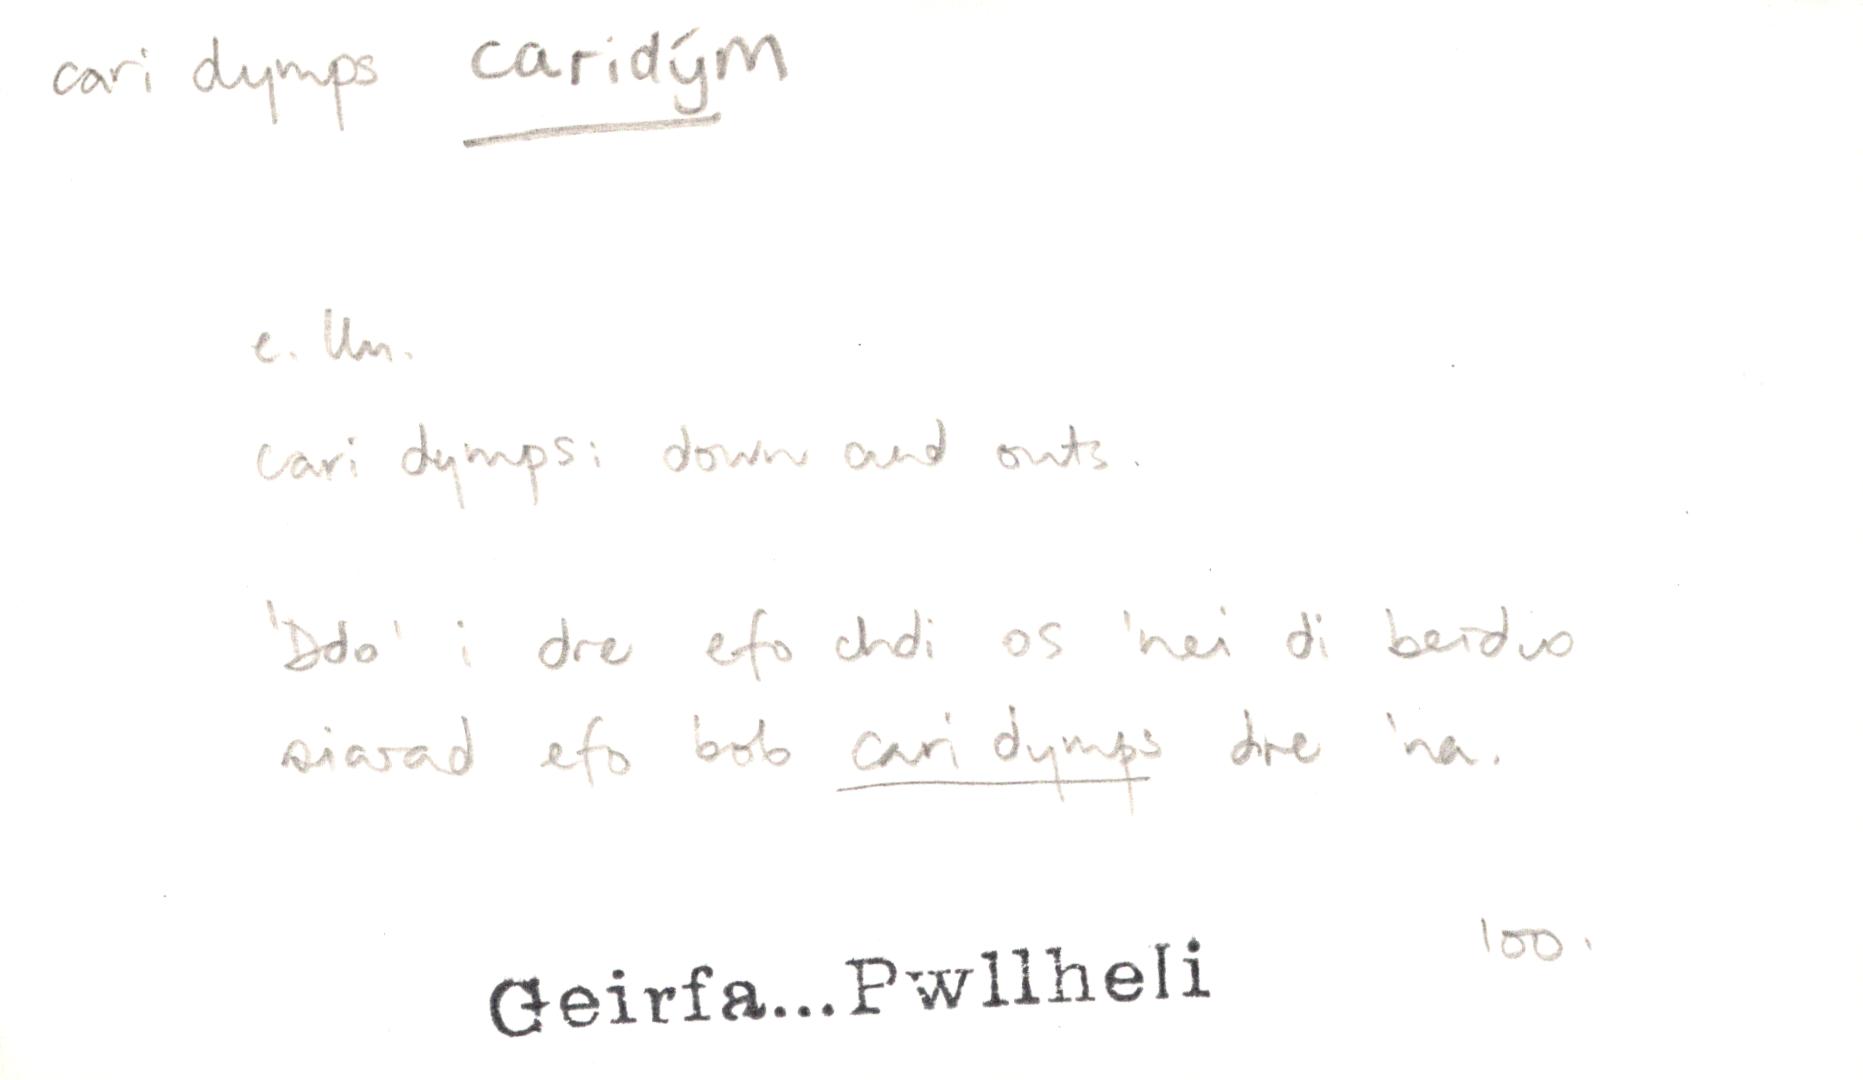 cari dymps caridým
e. llu.
cari dymps: down and outs.
'Ddo' i dre efo chdi os 'nei di beidio
siarad efo bob cari dymps dre 'na.
100.
Geirfa...Pwllheli